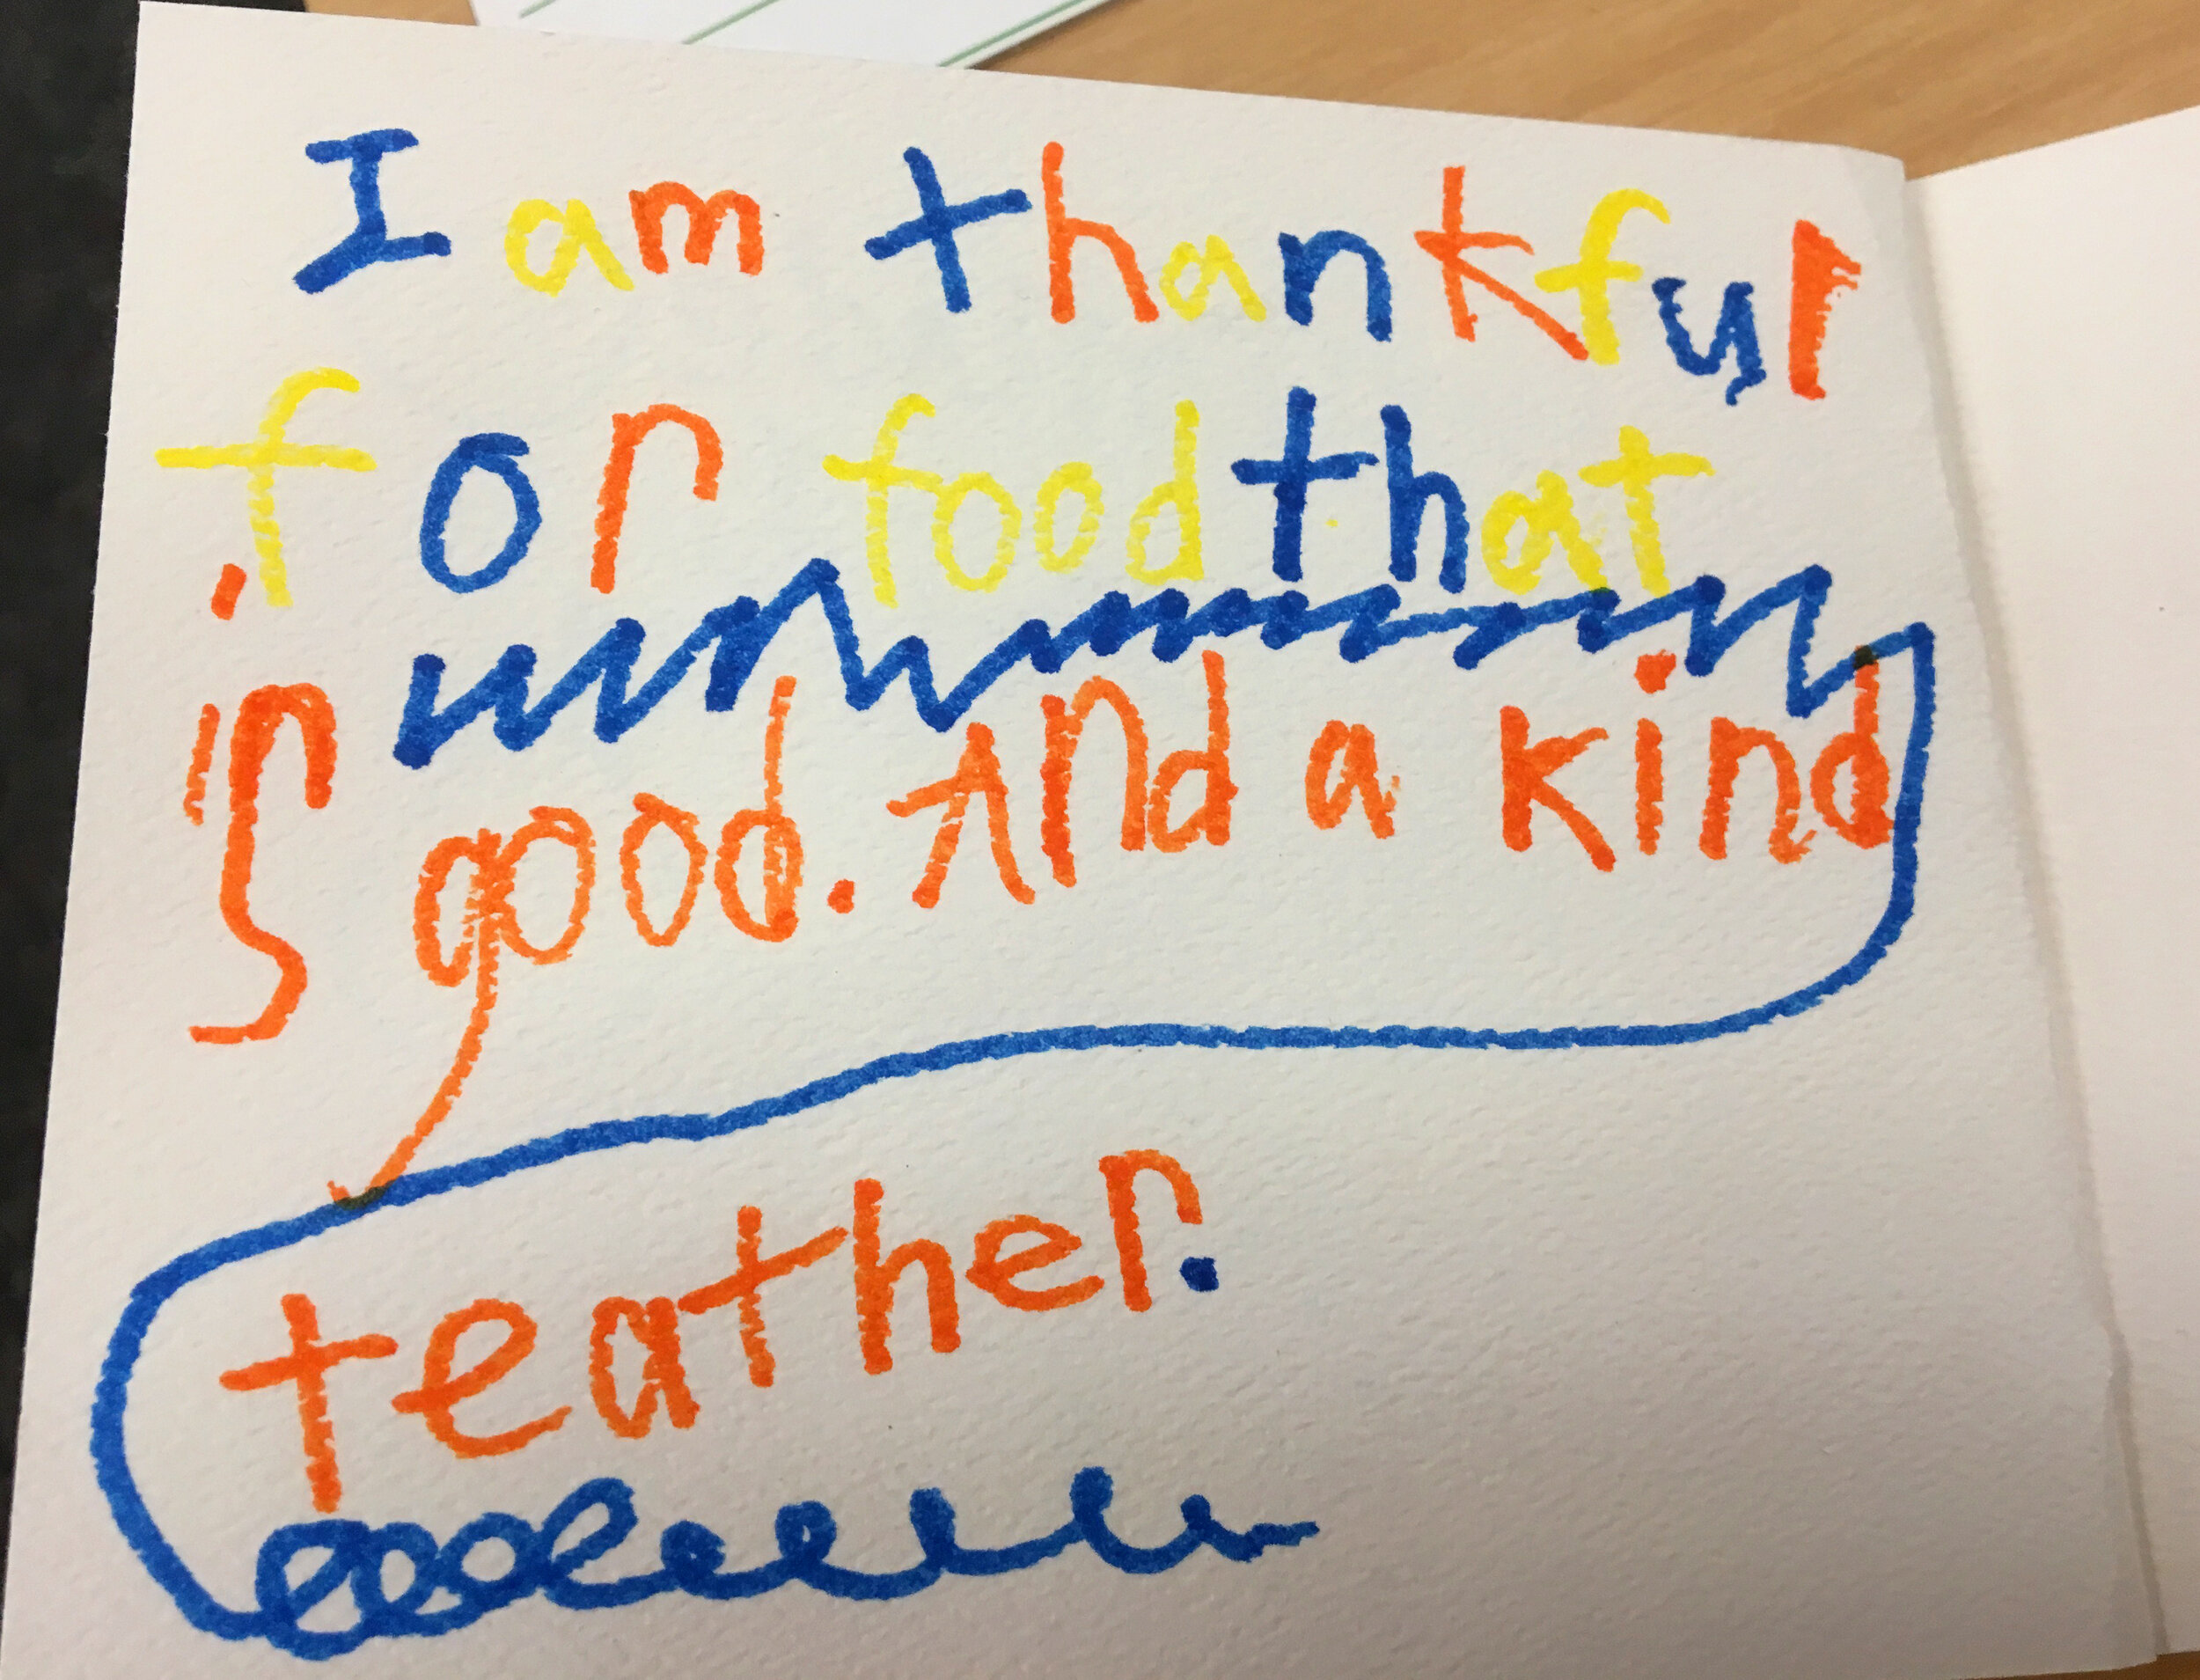 I am thankful
for food that
is good. And a kind
teather.